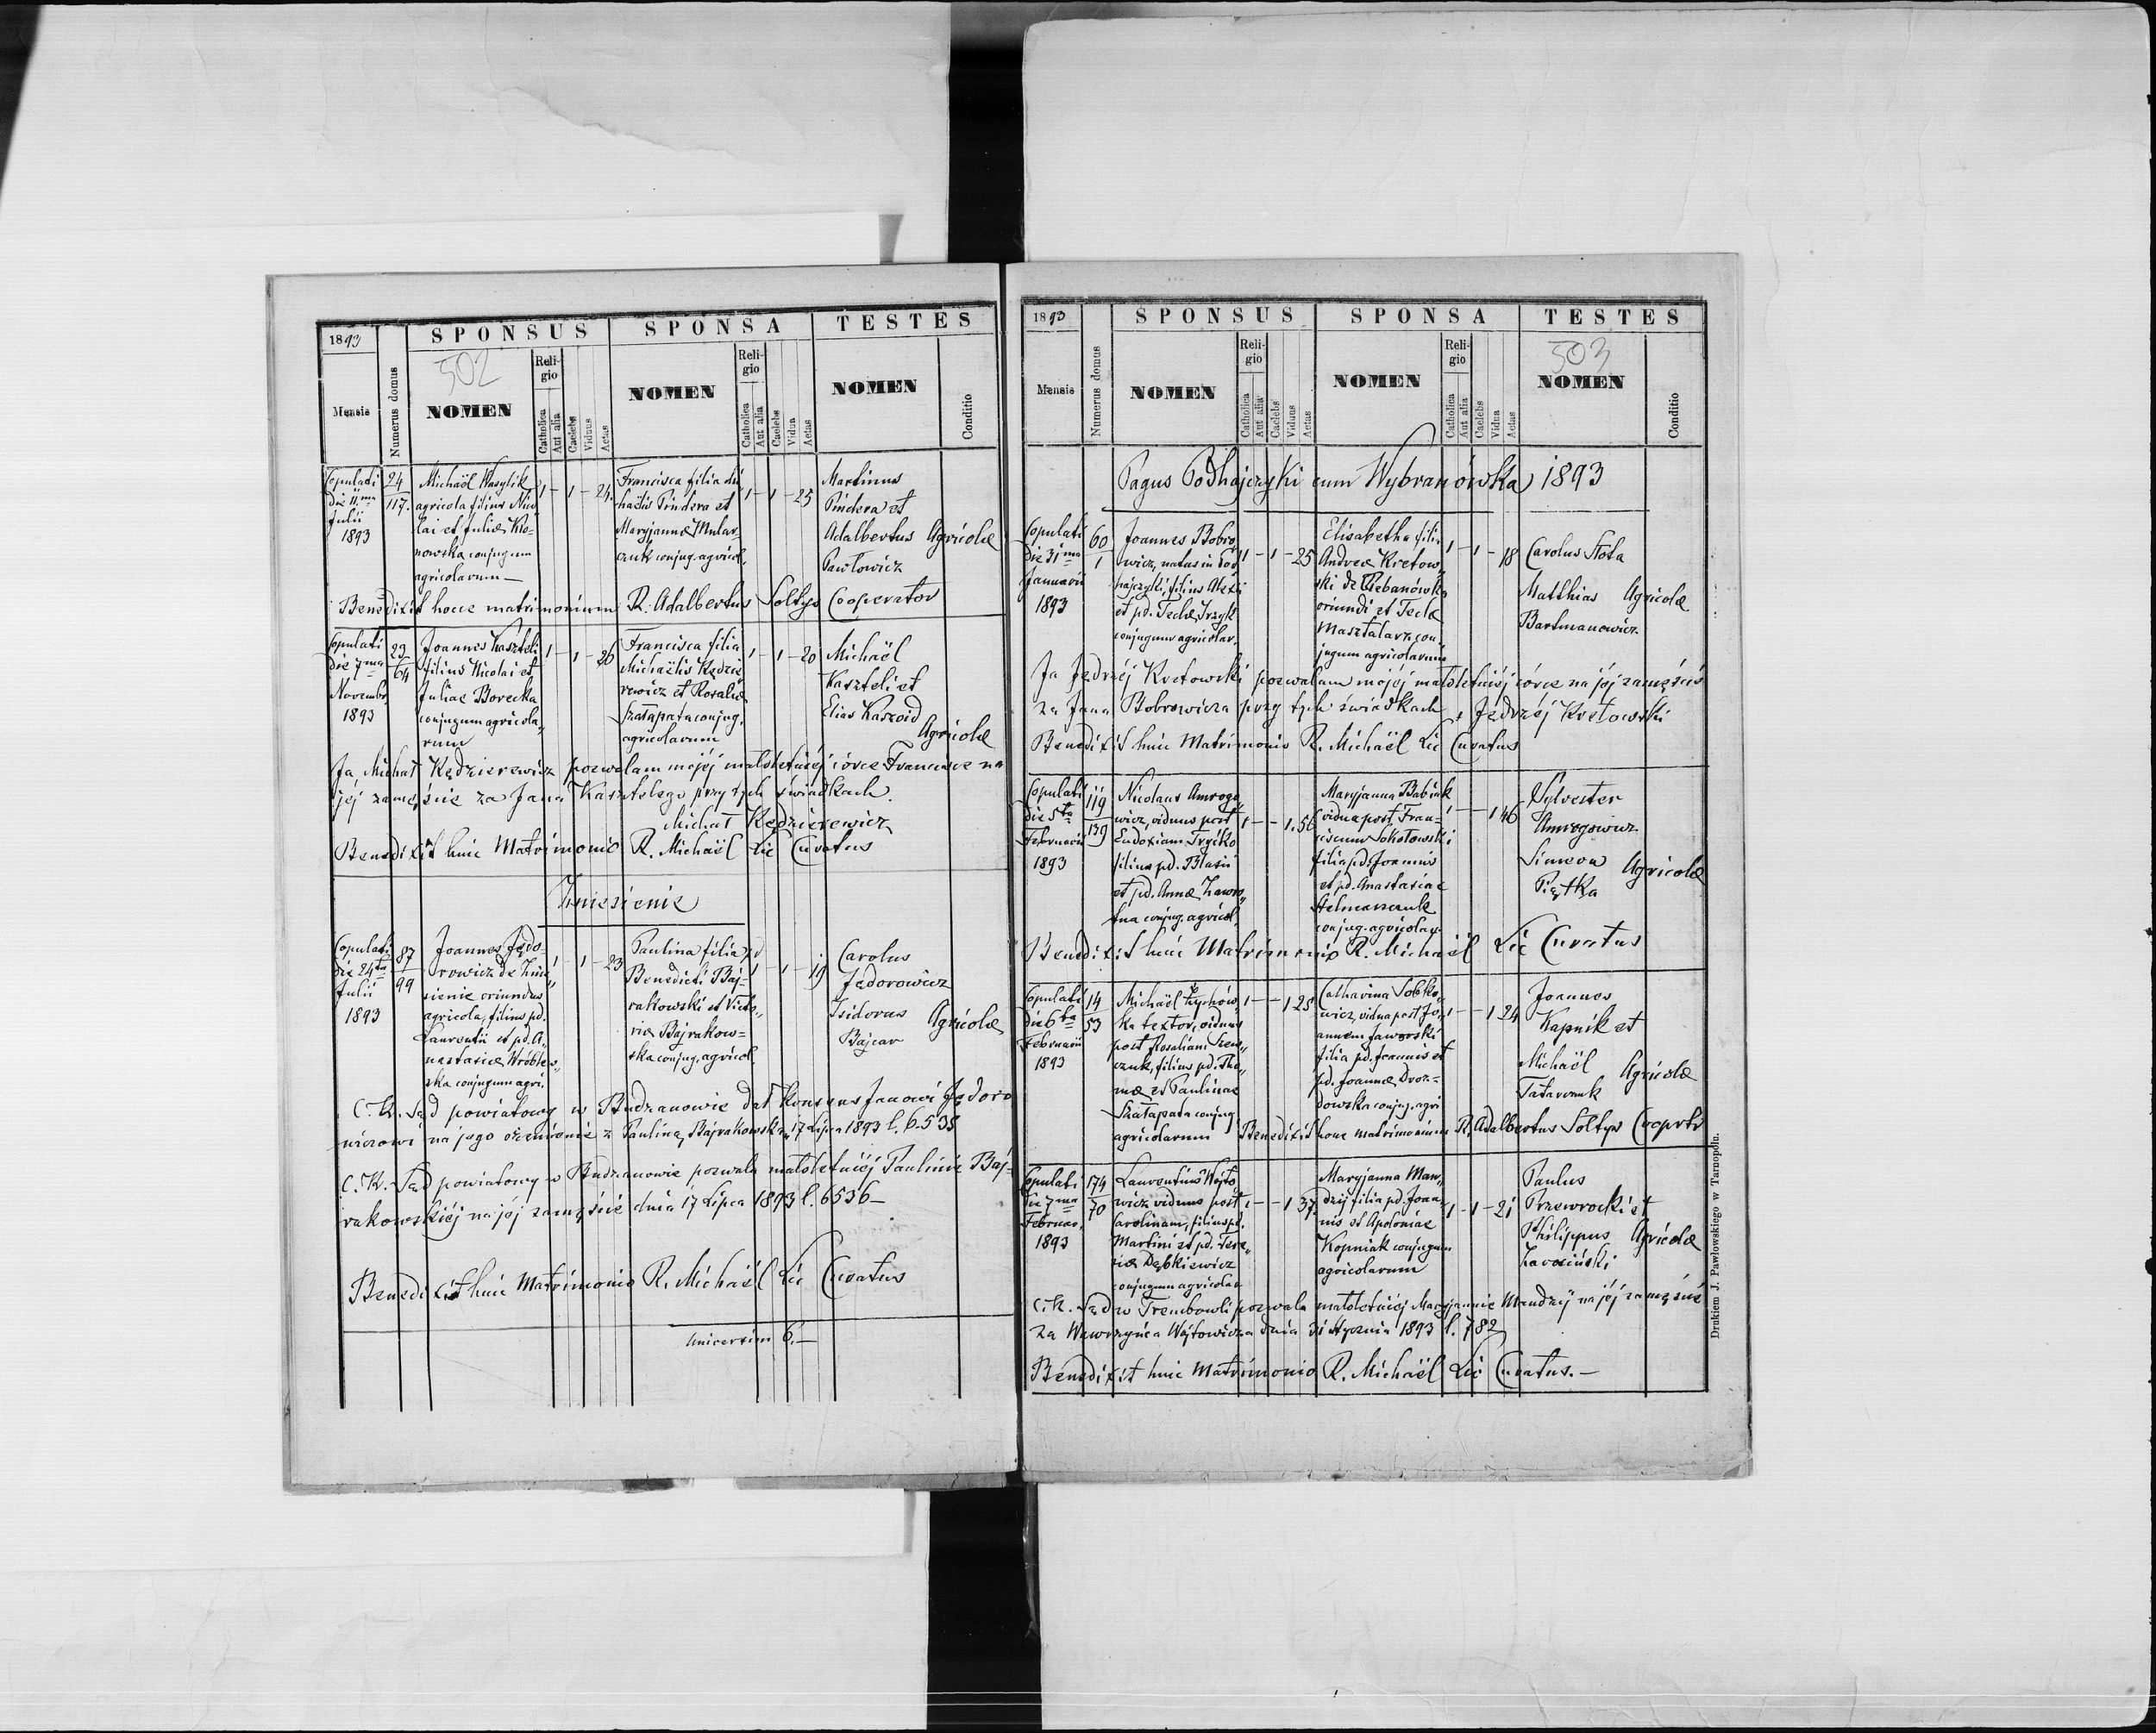 1893
SPONSUS
SPONSA
TESTES
502
Mensis
Numerus domus
NOMEN
Reli-
gio
Catholica
Aut alia
Caelebs
Viduus
Aetas
NOMEN
Reli-
gio
Catholica
Aut alia
Caelebs
Vidua
Aetas
NOMEN
Conditio
Copulati
die 11ma
Julii
1893
24
117.
Michaël Wasylik
agricola filius Nico
lai et Juliæ Kro-
nowska conjugum
agricolarum—
1 – 1 – 24
Francisca filia Mi
haëlis Pindera et
Maryjannæ Mular-
czuk conjug. agricol.
1 – 1 – 25
Martinus
Pindera et
Adalbertus Agricolæ
Pawłowicz
Benedixit hocce matrimonium R. Adalbertus Sołtys Cooperator
Copulati
die 7ma
Novembr.
1893
23
64
Joannes Kaszteli
filius Nicolai et
Juliae Borecka
conjugum agricola„
rum
1 – 1 – 26
Francisca filia
Michaëlis Kędzie
rewicz et Rosaliæ
Szałapata conjug.
agricolarum
1 – 1 – 20
Michaël
Kaszteli et
Elias Kaszoid
Agricolæ
Ja Michał Kędzierewicz pozwalam mojéj małoletniéj córce Francisce na
jéj zamęście za Jana Kasztelego przy tych świadkach.
Michał Kędzierewicz
Benedixit huic Matrimonio R. Michaël Lic Curatus
Zniesienie
Copulati
die 24ta
Julii
1893
87
99
Joannes Jędo-
rowicz de Znie„
sienie oriundus
agricola, filius pd.
Laurentii et pd. A„
nastasiæ Wróblew„
ska conjugum agri.
1 – 1 – 23
Paulina filia pd
Benedicti Baj-
rakowski et Victo„
riæ Bajrakow-
ska conjug. agricol.
1 1 – 19
Carolus
Jedorowicz
Isidorus Agricolæ
Bajcar
C. K. Sąd powiatowy w Budzanowie dał Konsens Janowi Jędoro
wiczowi na jego ożenienie z Pauliną Bajrakowską 17 Lipca 1893 l. 6535
C. K. Sąd powiatowy w Budzanowie pozwala małoletniéj Paulinie Baj-
rakowskiéj na jéj zamęście dnia 17 Lipca 1893 l. 6536—
Benedixit huic Matrimonio R. Michaël Lic Curatus
Universim 6.—
1893
SPONSUS
SPONSA
TESTES
503
Mensis
Numerus domus
NOMEN
Reli-
gio
Catholica
Aut alia
Caelebs
Viduus
Aetas
NOMEN
Reli-
gio
Catholica
Aut alia
Caelebs
Vidua
Aetas
NOMEN
Conditio
Pagus Podhajczyki cum Wybranówka 1893
Copulati
die 31ma
Januarii
1893
60
1
Joannes Bobro
wicz, natus in Pod
hajczyki, filius Alexii
et pd. Teclæ Irzyk
conjugum agricolar.
1 – 1 – 25
Elisabetha filia
Andreæ Kretow„
ski de Plebanówka
oriundi et Teclæ
Masztalarz con„
jugum agricolarum
1 – 1 – 18
Carolus Słota
Matthias Agricolæ
Bartmanowicz
Ja Jędrzéj Kretowski pozwalam mojéj małoletniéj córce na jéj zamęście
za Jana Bobrowicza przy tych świadkach. Jędrzéj Kretowski
Benedixit huic Matrimonio R. Michaël Lic Curatus
Copulati
die 5ta
Februarii
1893
119
139
Nicolaus Amrogo„
wicz, viduus post
Eudoxiam Tryćko
filius pd. Blasii
et pd. Annæ Zawro„
tna conjug. agricol.
1 – – 1. 56
Maryjanna Babiak
vidua post Fran-
ciscum Sokołowski
filia pd. Joannis
et pd. Anastasiae
Stelmaszczuk
conjug. agricolar.
1 – – 1 46
Sylvester
Amrogowicz
Simeon Agricolæ
Piętka
Benedixit huic Matrimonio R. Michaël Lic Curatus
Copulati
die 6ta
Februarii
1893
14
53
Michaël Łychów„
ka textor, viduus
post Rosaliam Szew„
czuk, filius pd. Tho„
mæ et Paulinae
Szałapata conjug.
agricolarum
1 – – 1 25
Catharina Sobko„
wicz, vidua post Jo„
annem Jaworski
filia pd. Joannis et
pd. Joannæ Dvor-
dowska conjug. agri
1 – – 1 24
Joannes
Kapnik et
Michaël Agricolæ
Tatarczuk
Benedixit hocce matrimonium R. Adalbertus Sołtys Cooprtr
Copulati
die 7ma
Februar.
1893
174
70
Laurentius Wojto
wicz viduus post
Carolinam, filius pd.
Martini et pd. Tere„
siæ Dąbkiewicz
conjugum agricolar
1 – – 1 37
Maryjanna Man„
dzij filia pd. Joan„
nis et Apoloniae
Kopniak conjugum
agricolarum
1 – 1 – 21
Paulus
Przewrocki et
Philippus Agricolæ
Zarociński
C. K. Sąd w Trembowli pozwala małoletniéj Maryjannie Mandzij na jéj zamęście
za Wawrzyńca Wójtowicza dnia 31 stycznia 1893 l. 782
Benedixit huic Matrimonio R. Michaël Lic Curatus.—
Drukiem J. Pawłowskiego w Tarnopolu.